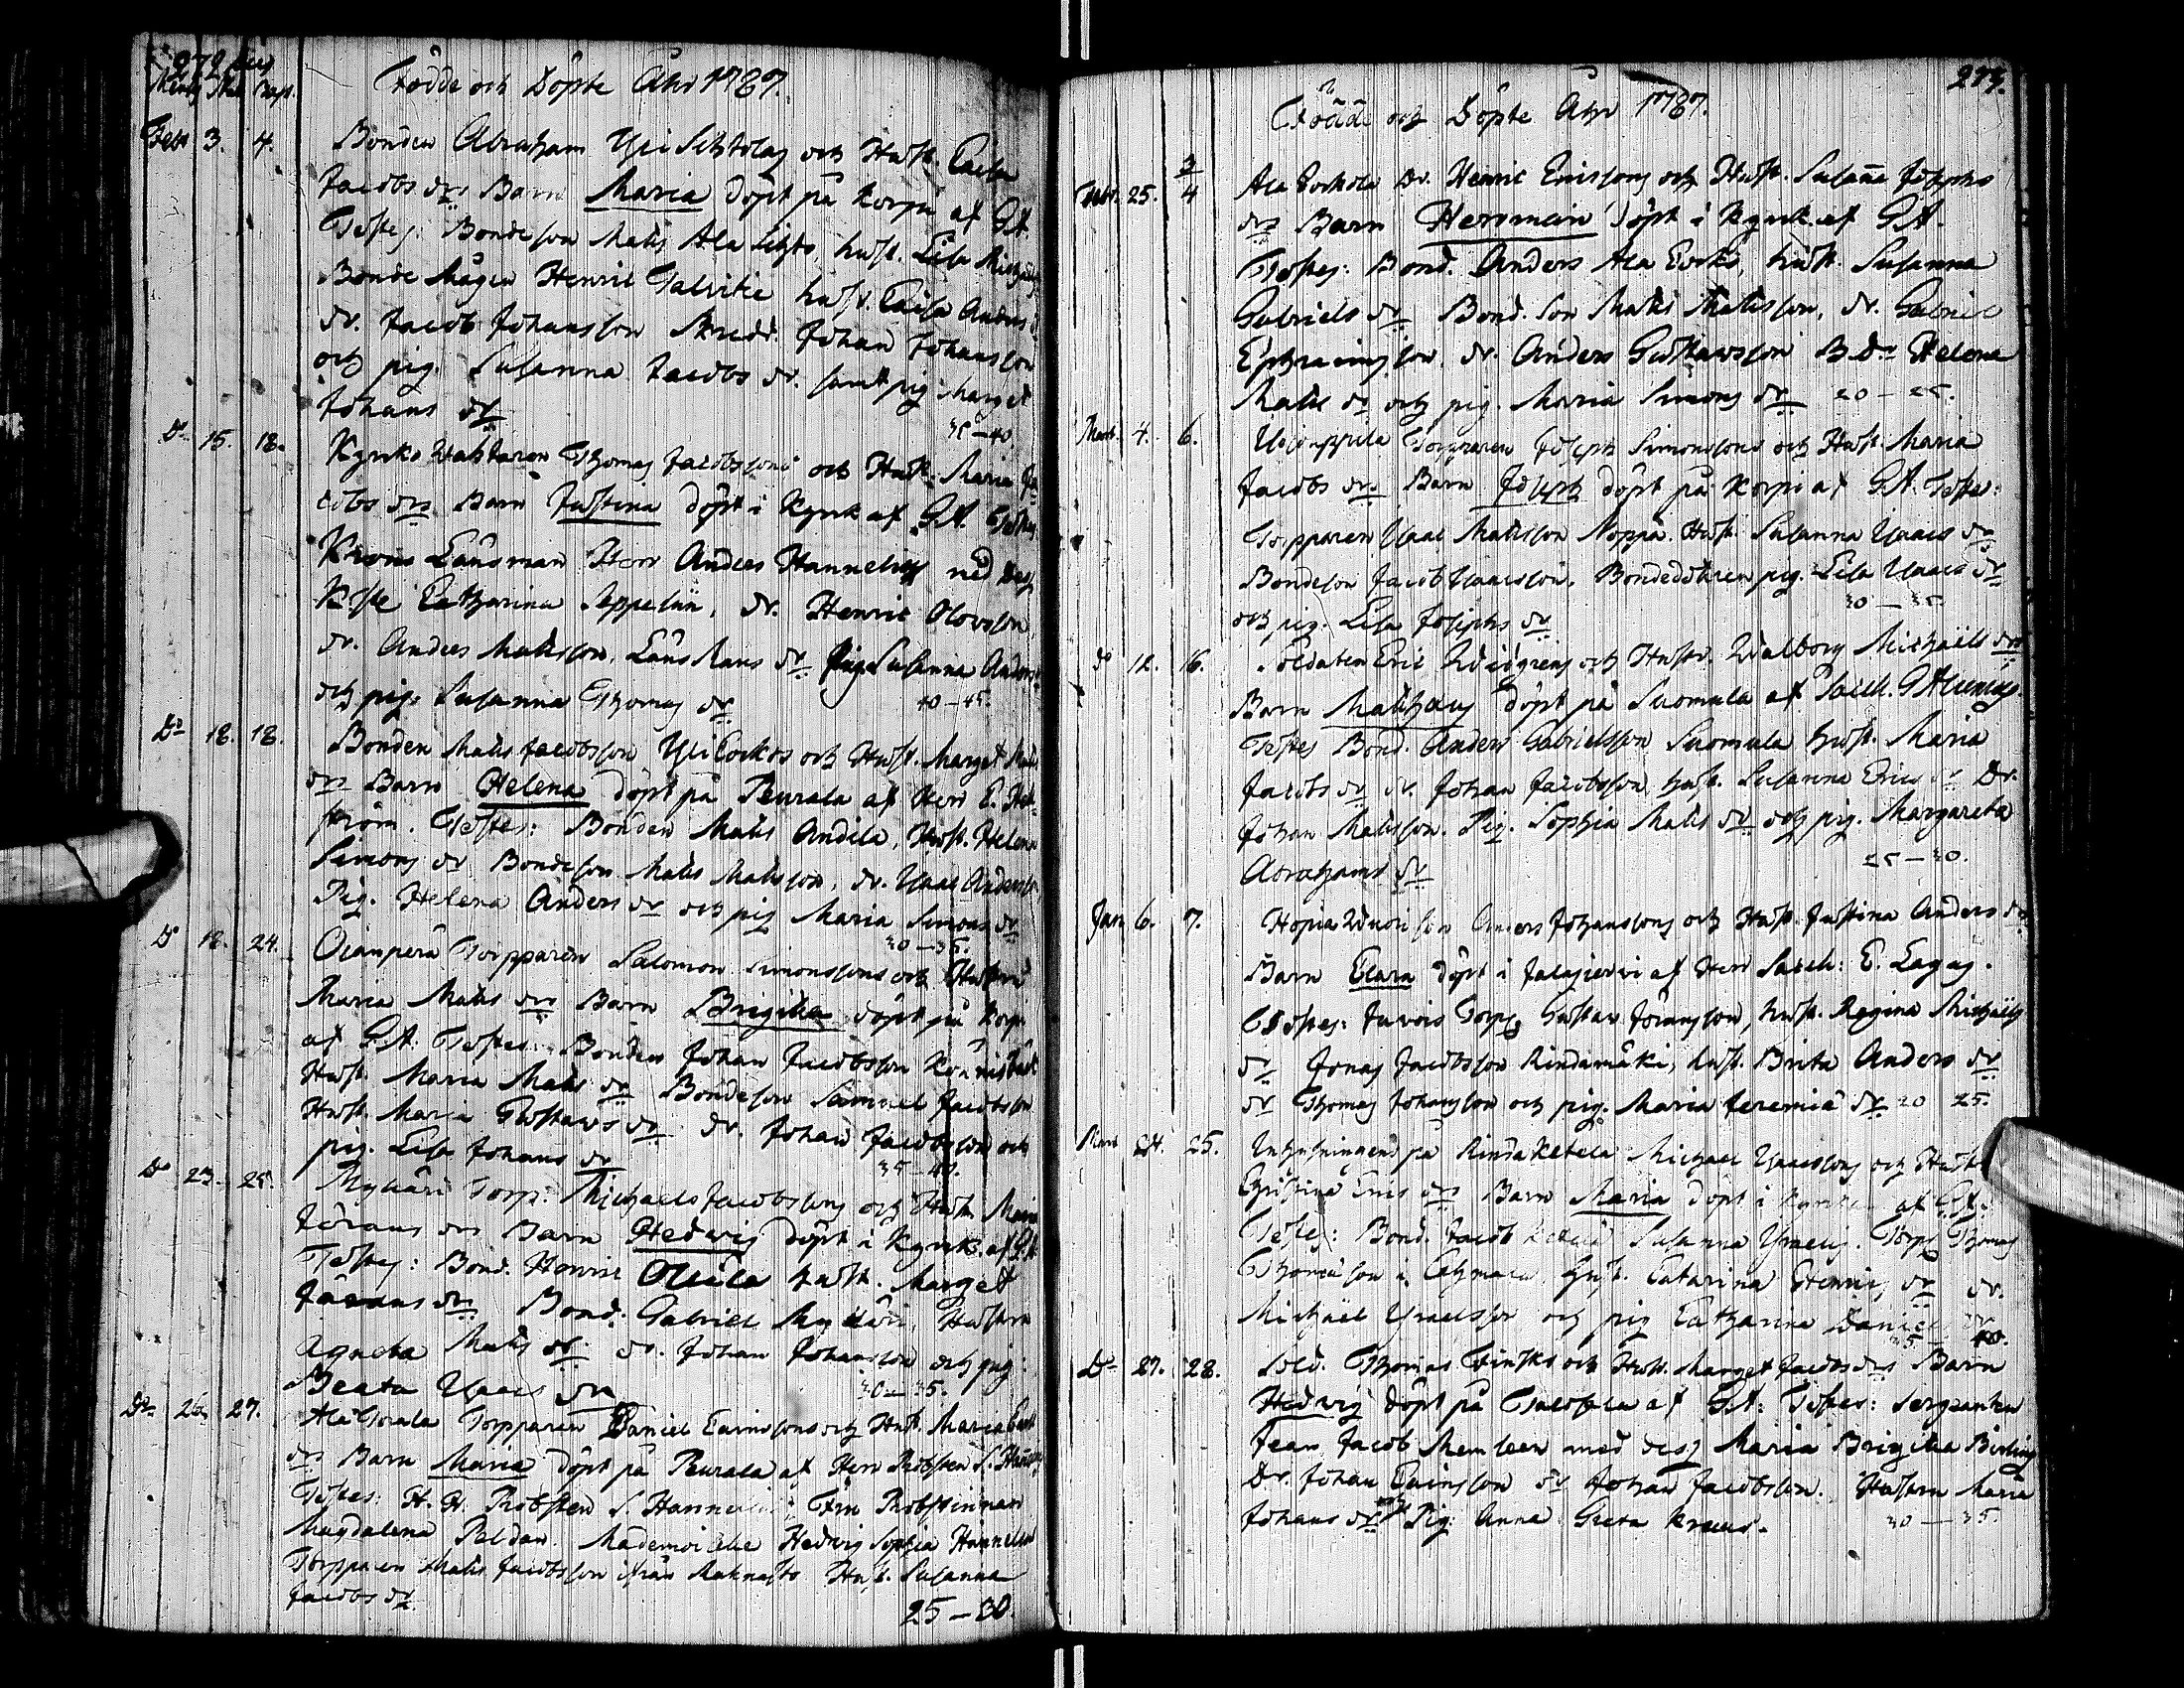 272
Mens Nat. Bapt.
Födde och Döpte Åhr 1787.
Febr 3. 4. Bonden Abraham Yli och Hust. Caisa
Jacobs drs Barn Maria döpt på Korpi af G.A.
Testes: Bondeson Matts Ala hust. Lisa Michaels
Bonde Mågen Henric Talvitie hustr. Caisa Anders
dr. Jacob Johansson Skredd. Johan Johansson
och pig. Susanna Jacobs dr. samt pig Marget
Johans dr
35–40.
Do 15. 18. Kyrko Wäktaren Thomas Jacobssons och Hust. Maria Ja
cobs drs Barn Justina döpt i Kyrk. af G.A. Testes
Krono Länsman Herr Anders Hannelius med dess
K: Catharina Seppelin, dr. Henric Olovsson,
dr. Anders Mattsson, Läns Mans dr Pig. Susanna Anders
och pig. Susanna Thomas dr 40–45.
Do 18. 18. Bonden Matts Jacobsson Yli Cockos och Hust. Marget Matts
drs Barn Helena döpt på Peurala af Herr E. Hel-
ström. Testes: Bonden Matts Andila, Hust. Helena
Simons dr Bondeson Matts Mattsson, dr. Isaac Andersson
Pig. Helena Anders dr och pig Maria Simons dr
30–35.
Do 18. 24. Ojanperä Torpparen Salomon Simonssons och Hustru
Maria Matts drs Barn Brigitta döpt på Korpi
af G.A. Testes: Bonden Johan Jacobsson
Hust. Maria Matts dr Bondeson Samuel Jacobsson
Hust. Maria Gustavs dr dr. Johan Jacobsson och
pig. Lisa Johans dr 35–40.
Do 23. 25. Mylläri Torp: Michaels Jacobssons och Hust. Maria
Jörans drs Barn Hedvig döpt i Kyrk. af G.A.
Testes: Bond. Henric Ollila hust. Marget
Jörans dr Bond. Gabriel Mylläri, Hustru
Agneta Matts dr dr. Johan Johansson och pig:
Beata Isaacs dr 30–35.
Do 26 27. Ala Torala Torpparen Daniel och Hust. Maria
drs Barn Maria döpt på Peurala af Herr Probsten S. Hannelius
Testes: H. H. Probsten S. Hannelius Fru Probstinnan
Magdalena Peldan. Mademoiselle Hedvig Sophia Hannelius
Torpparen Matts Jacobsson ifrån Hust. Susanna
Jacobs dr. 25–30.
273.
Födde och Döpte Åhr 1787.
Febr. 25. 3/4 Ala Dr. Henric Ericssons och Hust. Susanna Josephs
drs Barn Hermain döpt i Kyrk. af G.A.
Testes: Bond. Anders Ala hust. Susanna
Gabriels dr Bond. Son Matts Mattsson, dr. Gabriel
Ephraimsson, dr. Anders Gustavsson B. Dr Helena
Matts dr och pig. Maria Simons dr 20–25.
Mart. 4. 6. Torpparen Joseph Simonssons och Hust. Maria
Jacobs drs Barn Joseph döpt på Korpi af G.A. Testes:
Torpparen Isaac Mattsson Noppa. Hust. Susanna Isaacs dr
Bondeson Jacob Isaacsson. Bondedottren pig. Lisa Isaacs dr
och pig. Lisa Josephs dr 30–35.
do 12. 16. Soldaten Eric Widgrens och Hustr. Walborg Michaels drs
Barn Matthæus döpt på Suomula af
Testes Bond. Anders Gabrielsson Suomula hust. Maria
Jacobs dr dr. Johan Jacobsson, hust. Susanna Erics dr Dr.
Johan Mattsson. Pig. Sophia Matts dr och pig. Margareta
Abrahams dr 25–30.
Jan 6. 7. Hopia Wuori son Anders Johanssons och Hust. Justina Anders dr
Barn Clara döpt i Jalasjervi af Herr Sacell: E. Lagus.
Testes: Torp. Gustav Jöransson, hust. Regina Michaels
dr Jonas Jacobsson Rindamäki, hust. Brita Anders dr
dr Thomas Johansson och pig. Maria Jeremiæ dr 20 25.
Mart 24. 25. Inhysningens på Rinda Ketela Michael Isaacssons och Hustr
Christina Erics drs Barn Maria döpt i Kyrkan af G.A.
Testes: Bond. Jacob Susanna Torp. Thomas
Thomasson i Hust. Catarina Henrics dr dr.
Michael och pig Catharina Daniels dr
35 40.
Do 27. 28. Sold. Thomas Finskes och Hust. Marget Jacobs drs Barn
Hedvig döpt på af G.A: Testes: Sergeanten
Jean Jacob Memleen med dess Maria Brigitta
Dr. Johan dr Johan Jacobsson. Hustrun Maria
Johans dr Pig: Anna Greta 30–35.